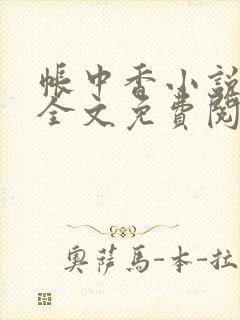 帳中香小説
全文免費閱
奧薩馬-本-拉